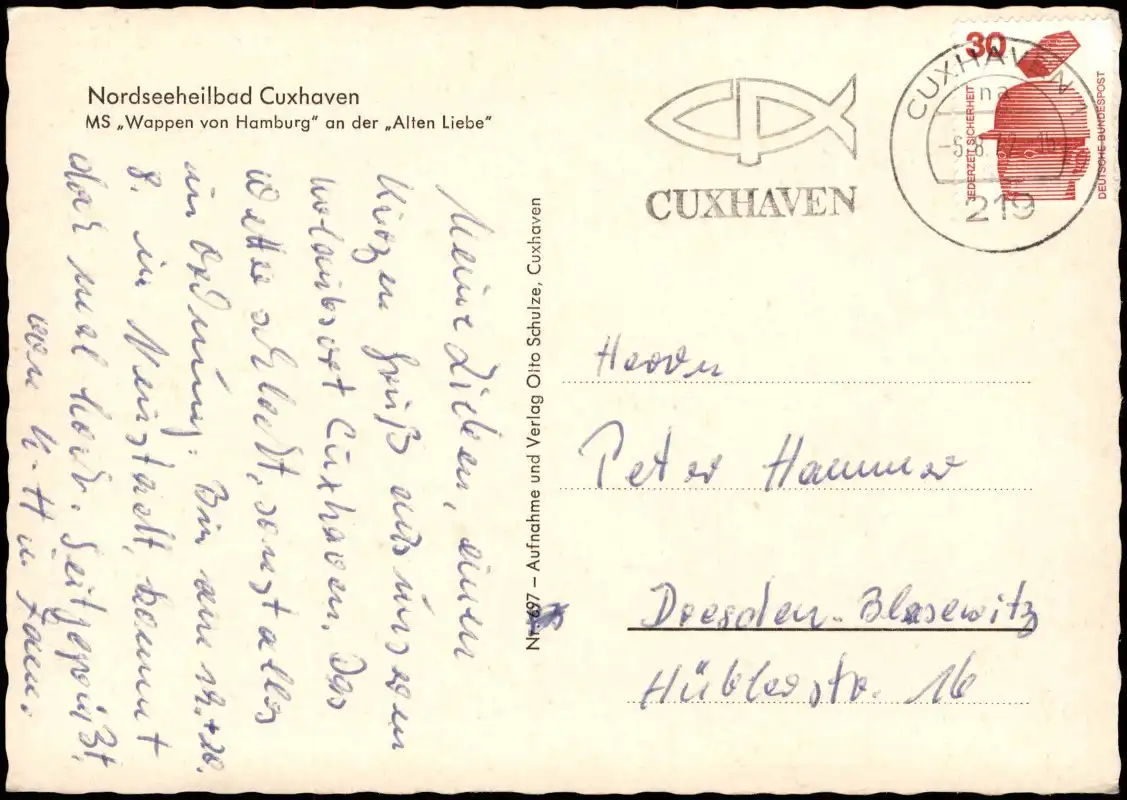 Nordseeheilbad Cuxhaven
MS „Wappen von Hamburg" an der „Alten Liebe"
Meine Lieben, einen
kurzen Gruß aus unserem
Urlaubsort Cuxhaven. Das
Wetter schlecht, sonst alles
in Ordnung. Bin am 19. + 20.
8. in Neustadt, kommt
doch mal hoch. Seit gegrüßt
von K-H u. Fam.
Nr. 697 – Aufnahme und Verlag Otto Schulze, Cuxhaven
CUXHAVEN
CUXHAVEN
na
219
30
JEDERZEIT SICHERHEIT
DEUTSCHE BUNDESPOST
Herrn
Peter Hammer
Dresden-Blasewitz
Hüblerstr. 16